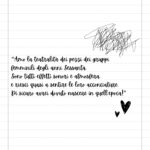 "Amo la teatralità dei pezzi dei gruppi
femminili degli anni Sessanta.
Sono tutti effetti sonori e atmosfera
e riesci quasi a sentire le loro acconciature.
Di sicuro avrei dovuto nascere in quell'epoca!"